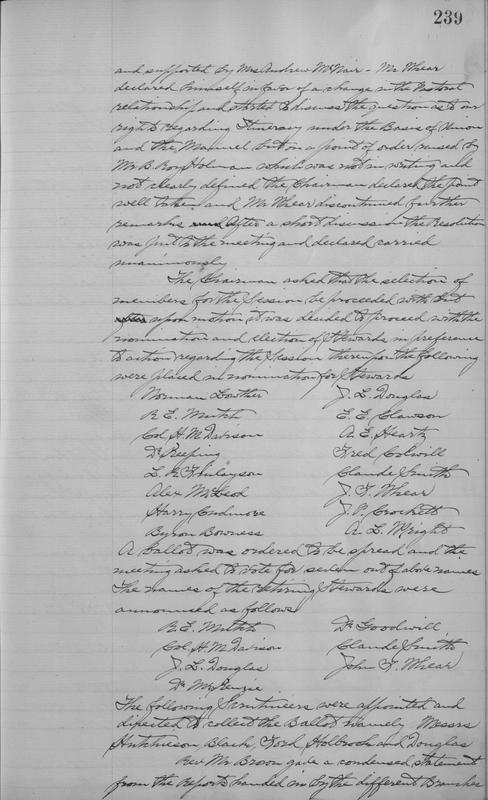 239
and supported by Mrs Andrew McNair - Mr Whear
declared himself in favor of a change in the Pastoral
relationship and started to discuss the question as to our
rights regarding Itinerary under the Basis of Union
and the Manuel but on a point of order raised by
Mr B. Roy Holman which was not in writing and
not clearly defined the Chairman declared the point
well taken and Mr Whear discontinued further
remarks and After a short discussion the Resolution
was put to the meeting and declared carried
unanimously
The Chairman asked that the selection of
members for the Session be proceeded with but
upon motion it was decided to proceed with the
nomination and election of Stewards in preference
to action regarding the Session thereupon the following
were placed in nomination for Stewards
Norman Lowther J. L. Douglas
R E. Mutch E. E. Clawson
Col. H. M Davison A. E. Heartz
Dr Keeping Fred Colwill
L. R Finlayson Claude Smith
Alex McLeod J. F. Whear
Harry Cudmore J. P. Crockett
Byron Bowness A. L. Wright
A Ballot was ordered to be spread and the
meeting asked to vote for seven out of above names
The names of the retiring Stewards were
announced as follows
R. E. Mutch Dr Goodwill
Col. H. M Davison Claude Smith
J. L. Douglas John F. Whear
Dr McKenzie
The following Scrutineers were appointed and
directed to collect the Ballot namely Messrs
Hutchieson Black, Ford, Holbrook and Douglas
Rev Mr Brown gave a condensed statement
from the Reports handed in by the different Branches